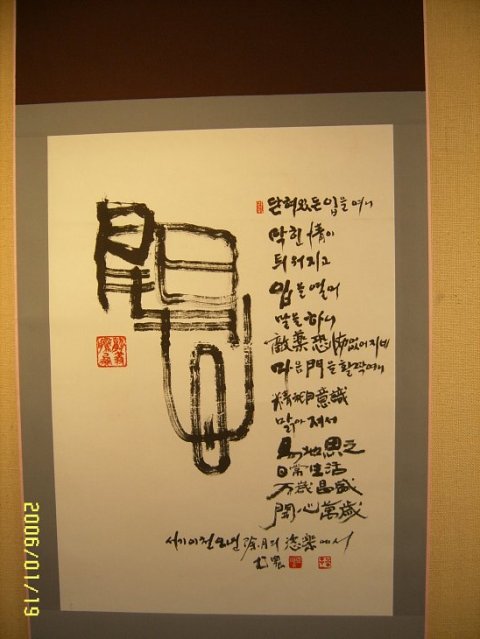 開心
닫혀있든입을여니
막힌情이
틔워지고
입을열어
말을하니
恐怖없어지네
마음門을활짝여니
精神意識
맑아져서
易地思之
日常生活
万歲昌盛
開心萬歲
서기이천오년 月의 樂에서
2006/01/19